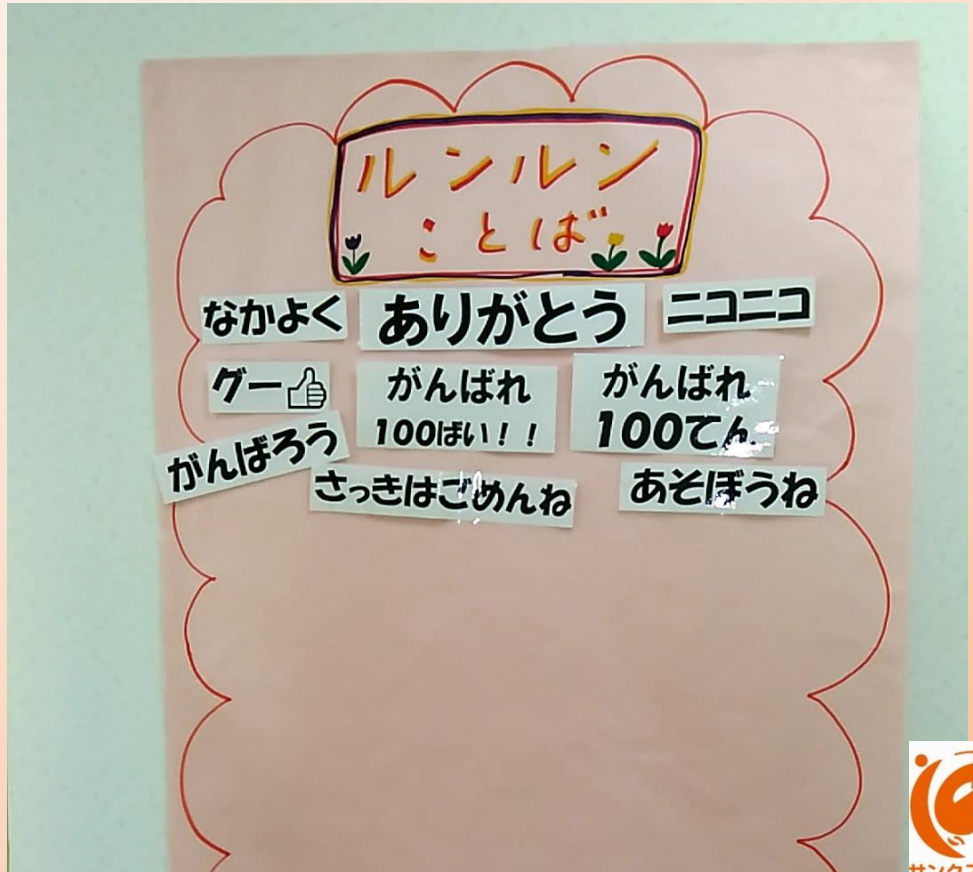 ルンルン
ことば
なかよく
ありがとう
ニコニコ
グー👍
がんばれ
100ばい！！
がんばれ
100てん
がんばろう
さっきはごめんね
あそぼうね